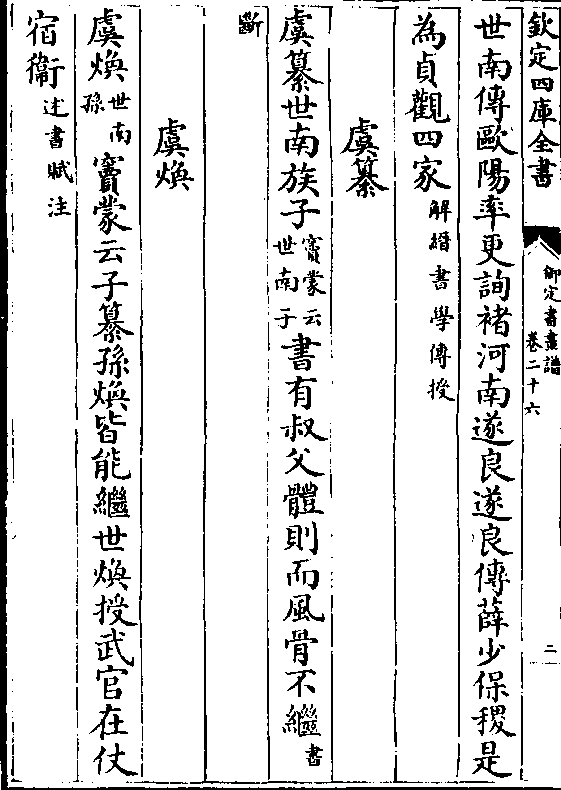 欽定四庫全書
御定書畫譜
卷二十六
二
世南傳歐陽率更詢褚河南遂良遂良傳薛少保稷是
為貞觀四家解縉書學傳授
虞纂
虞纂世南族子竇蒙云世南子書有叔父體則而風骨不繼書
斷
虞煥
虞煥世南孫竇蒙云子纂孫煥皆能繼世煥授武官在仗
宿衞述書賦注